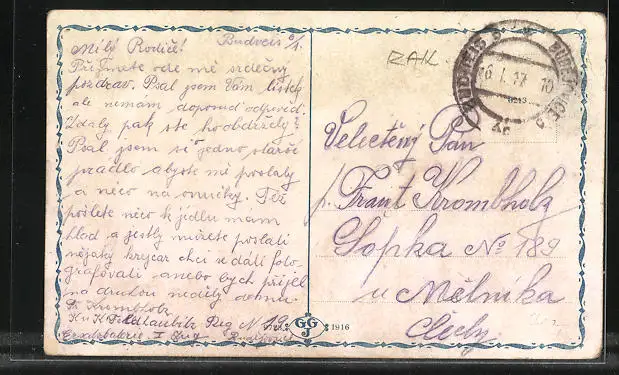 Budweis 6/1.
Milý Rodiče!
Přijmete ode mě srdečný
pozdrav. Psal jsem Vám lístek
ale nemám doposud odpověď.
Zdaly pak ste ho obdržely?
Psal jsem si o jedno starší
prádlo abyste mě poslaly
a něco na onučky. Též
pošlete něco k jídlu mam
hlad a jestly můžete poslati
nějaký krejcar chci se dáti foto
grafovati anebo bych přijel
na druhou neděly domu.
Fr. Krombholz
K u K Feldhaubitz Reg N 19
Budweis
RAK.
BUDWEIS
6. I. 17 10
Velectěný Pan
p. Frant Krombholz
Šopka No 189
u Mělníka
Čechy
GG
1916